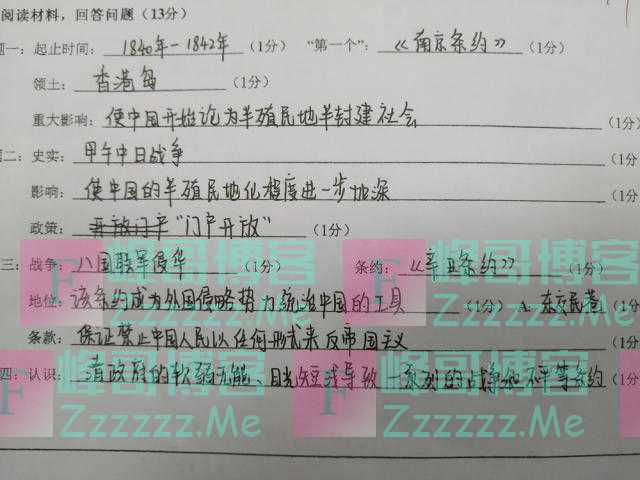 阅读材料，回答问题（13分）
题一：起止时间： 1840年-1842年 （1分） “第一个”： 《南京条约》 （1分）
领土： 香港岛 （1分）
重大影响： 使中国开始论为半殖民地半封建社会 （1分）
题二：史实： 甲午中日战争 （1分
影响： 使中国的半殖民地化程度进一步地深 （1分
政策： 开放门户 “门户开放” （1分）
三：战争： 八国联军侵华 （1分） 条约： 《辛丑条约》 （1分）
地位： 该条约成为外国侵略势力统治中国的工具 （1分） A 东交民巷 （1分
条款： 保证禁止中国人民以任何形式来反帝国主义 （1分
四：认识： 清政府的软弱无能、目光短浅导致一系列的战争和不平等条约 （1分
峰哥博客
Zzzzzz.Me
峰哥博客
Zzzzzz.Me
峰哥博客
Zzzzzz.Me
峰哥博客
Zzzzzz.Me